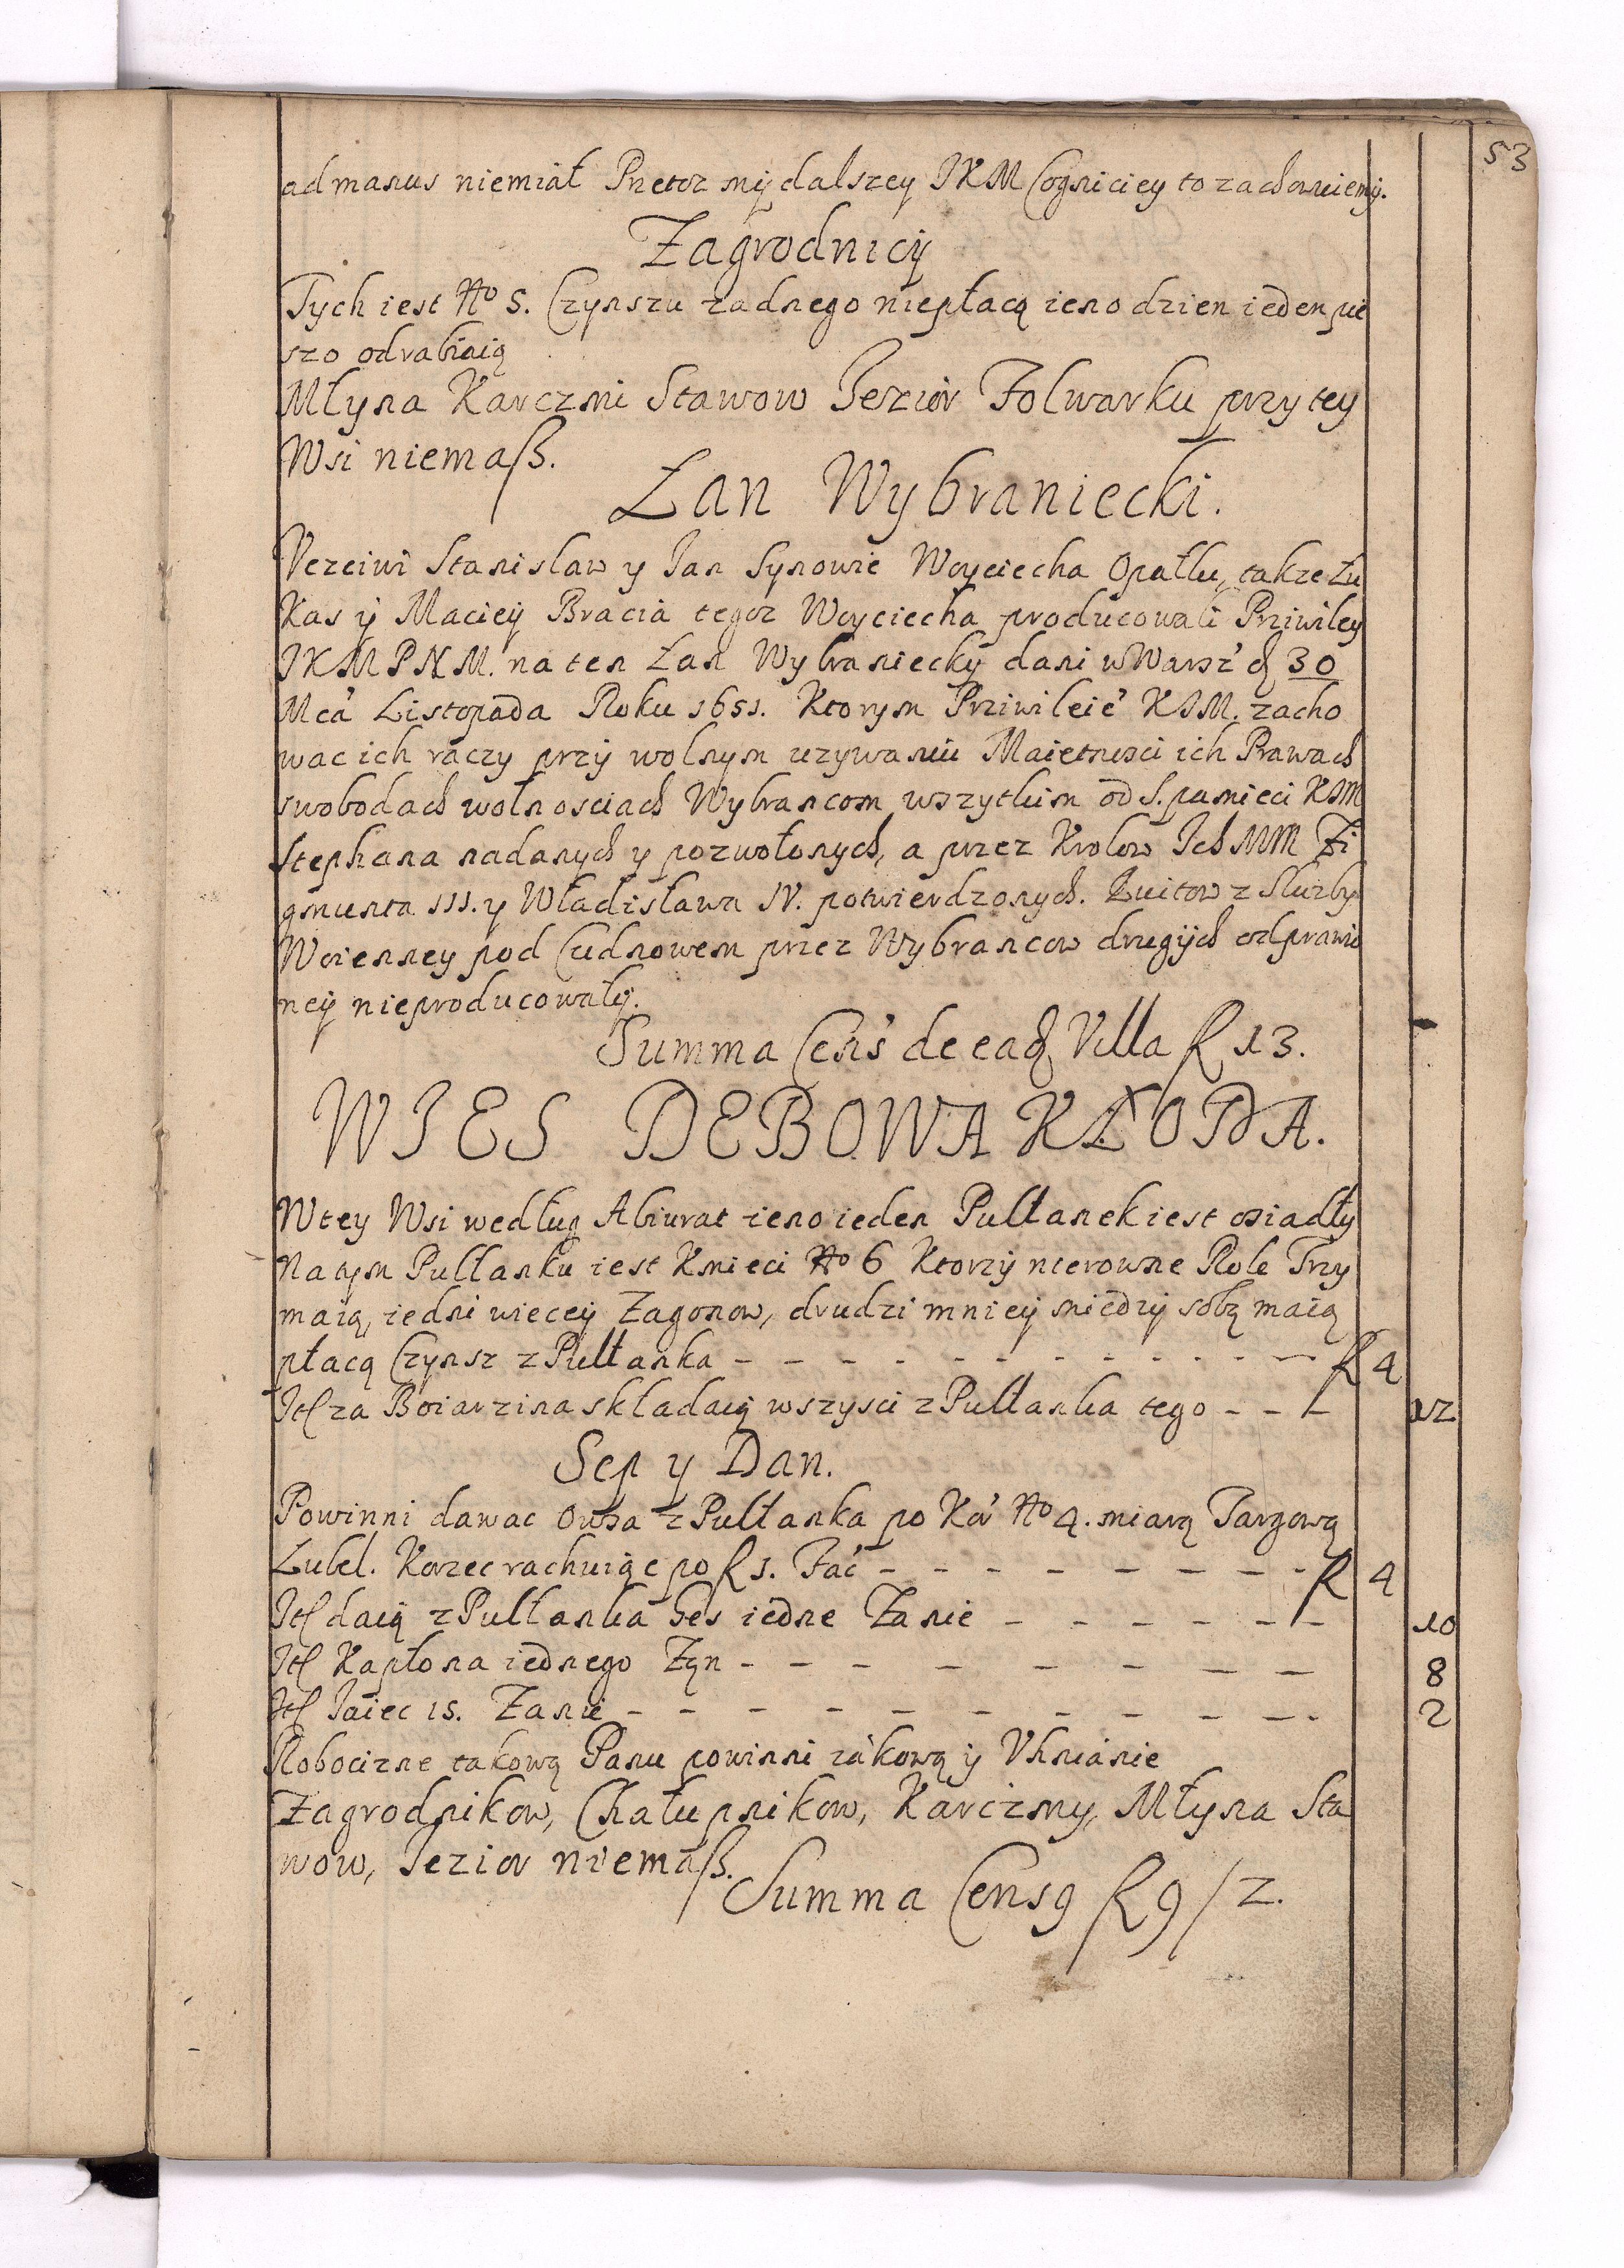 53
ad manus niemiał Przetoz my dalszey JKM Cogniciey to zachowuiemy.
Zagrodnicy
Tych iest No 5. Czynszu zadnego niepłacą ieno dzien ieden pie
szo odrabiaią
Młyna Karczmi Stawow Jezior Folwarku przy tey
Wsi niemaß.
Łan Wybraniecki.
Vczciwi Stanislaw y Jan Synowie Woyciecha Opałku, takze Łu
kas y Maciey Bracia tegoz Woyciecha producowali Priwiley
JKM PNM. na ten Łan Wybraniecky dani w Warsz' d 30
Mca Listopada Roku 1651. Ktorym Priwileie' KJM. zacho
wac ich raczy przy wolnym uzywaniu Maietnosci ich Prawach
swobodach wolnosciach Wybrancom wszytkim od S. pamieci KJM
Stephana nadanych y pozwolonych, a przez Krolow Ich MM Zi
gmunta III. y Władisława IV. potwierdzonych. Kuitow z Sluzby
Woienney pod Cudnowem przez Wybrancow drugich odprawio
ney nieproducowały.
Summa Cens' de ead Villa R 13.
WIES DEBOWA KŁODA.
W tey Wsi według Abiurat ieno ieden Pułłanek iest osiadły
Na tym Pułłanku iest Kmieci No 6 Ktorzy nierowne Role Trzy
maią, iedni wiecey Zagonow, drudzi mniey miedzy sobą maią
płacą Czynsz z Pułłanka - - - - - - - - - - - - R 4
It za Boiarzina składaią wszysci z Pułłanka tego - - - 12
Sep y Dan.
Powinni dawac Owsa z Pułłanka po Ko' No 4. miarą Targową
Lubel. Korzec rachuiąc po R 1. Fac' - - - - - - - - R 4
It daią z Pułłanka Ges iedne Za nie - - - - - - - 10
It Kapłona iednego Zan - - - - - - - - - 8
It Jaiec 15. Za nie - - - - - - - - - - - 2
Robocizne takową Panu powinni iakową y Vhnianie
Zagrodnikow, Chałupnikow, Karczmy, Młyna Sta
wow, Jezior niemaß.
Summa Censg R 9 / 2.